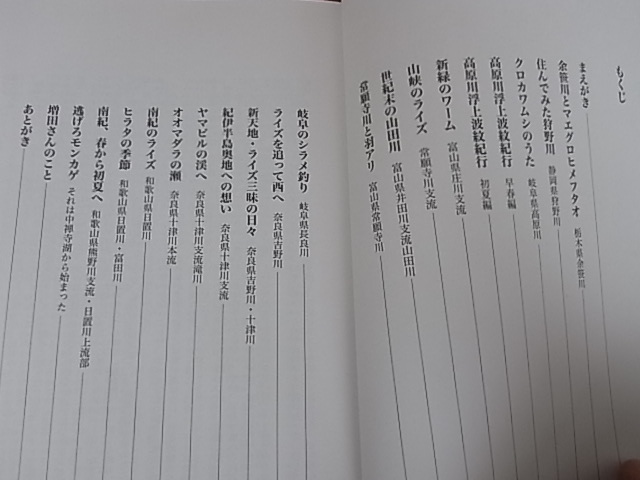 もくじ
まえがき
金笹川とマエグロヒメフタオ 栃木県金笹川
住んでみた狩野川 静岡県狩野川
クロカワムシのうた 岐阜県高原川
高原川浮上波紋紀行 早春編
高原川浮上波紋紀行 初夏編
新緑のワーム 富山県庄川支流
山峡のライズ 常願寺川支流
世紀末の山田川 富山県井田川支流山田川
常願寺川と羽アリ 富山県常願寺川
岐阜のシラメ釣り 岐阜県長良川
ライズを追って西へ 奈良県吉野川
新天地・ライズ三昧の日々 奈良県吉野川・十津川
紀伊半島奥地への想い 奈良県十津川支流
ヤマビルの渓へ 奈良県十津川支流滝川
オオマダラの瀬 奈良県十津川本流
南紀のライズ 和歌山県日置川
ヒラタの季節 和歌山県日置川・富田川
南紀、春から初夏へ 和歌山県熊野川支流・日置川上流部
逃げろモンカゲ それは中禅寺湖から始まった
増田さんのこと
あとがき